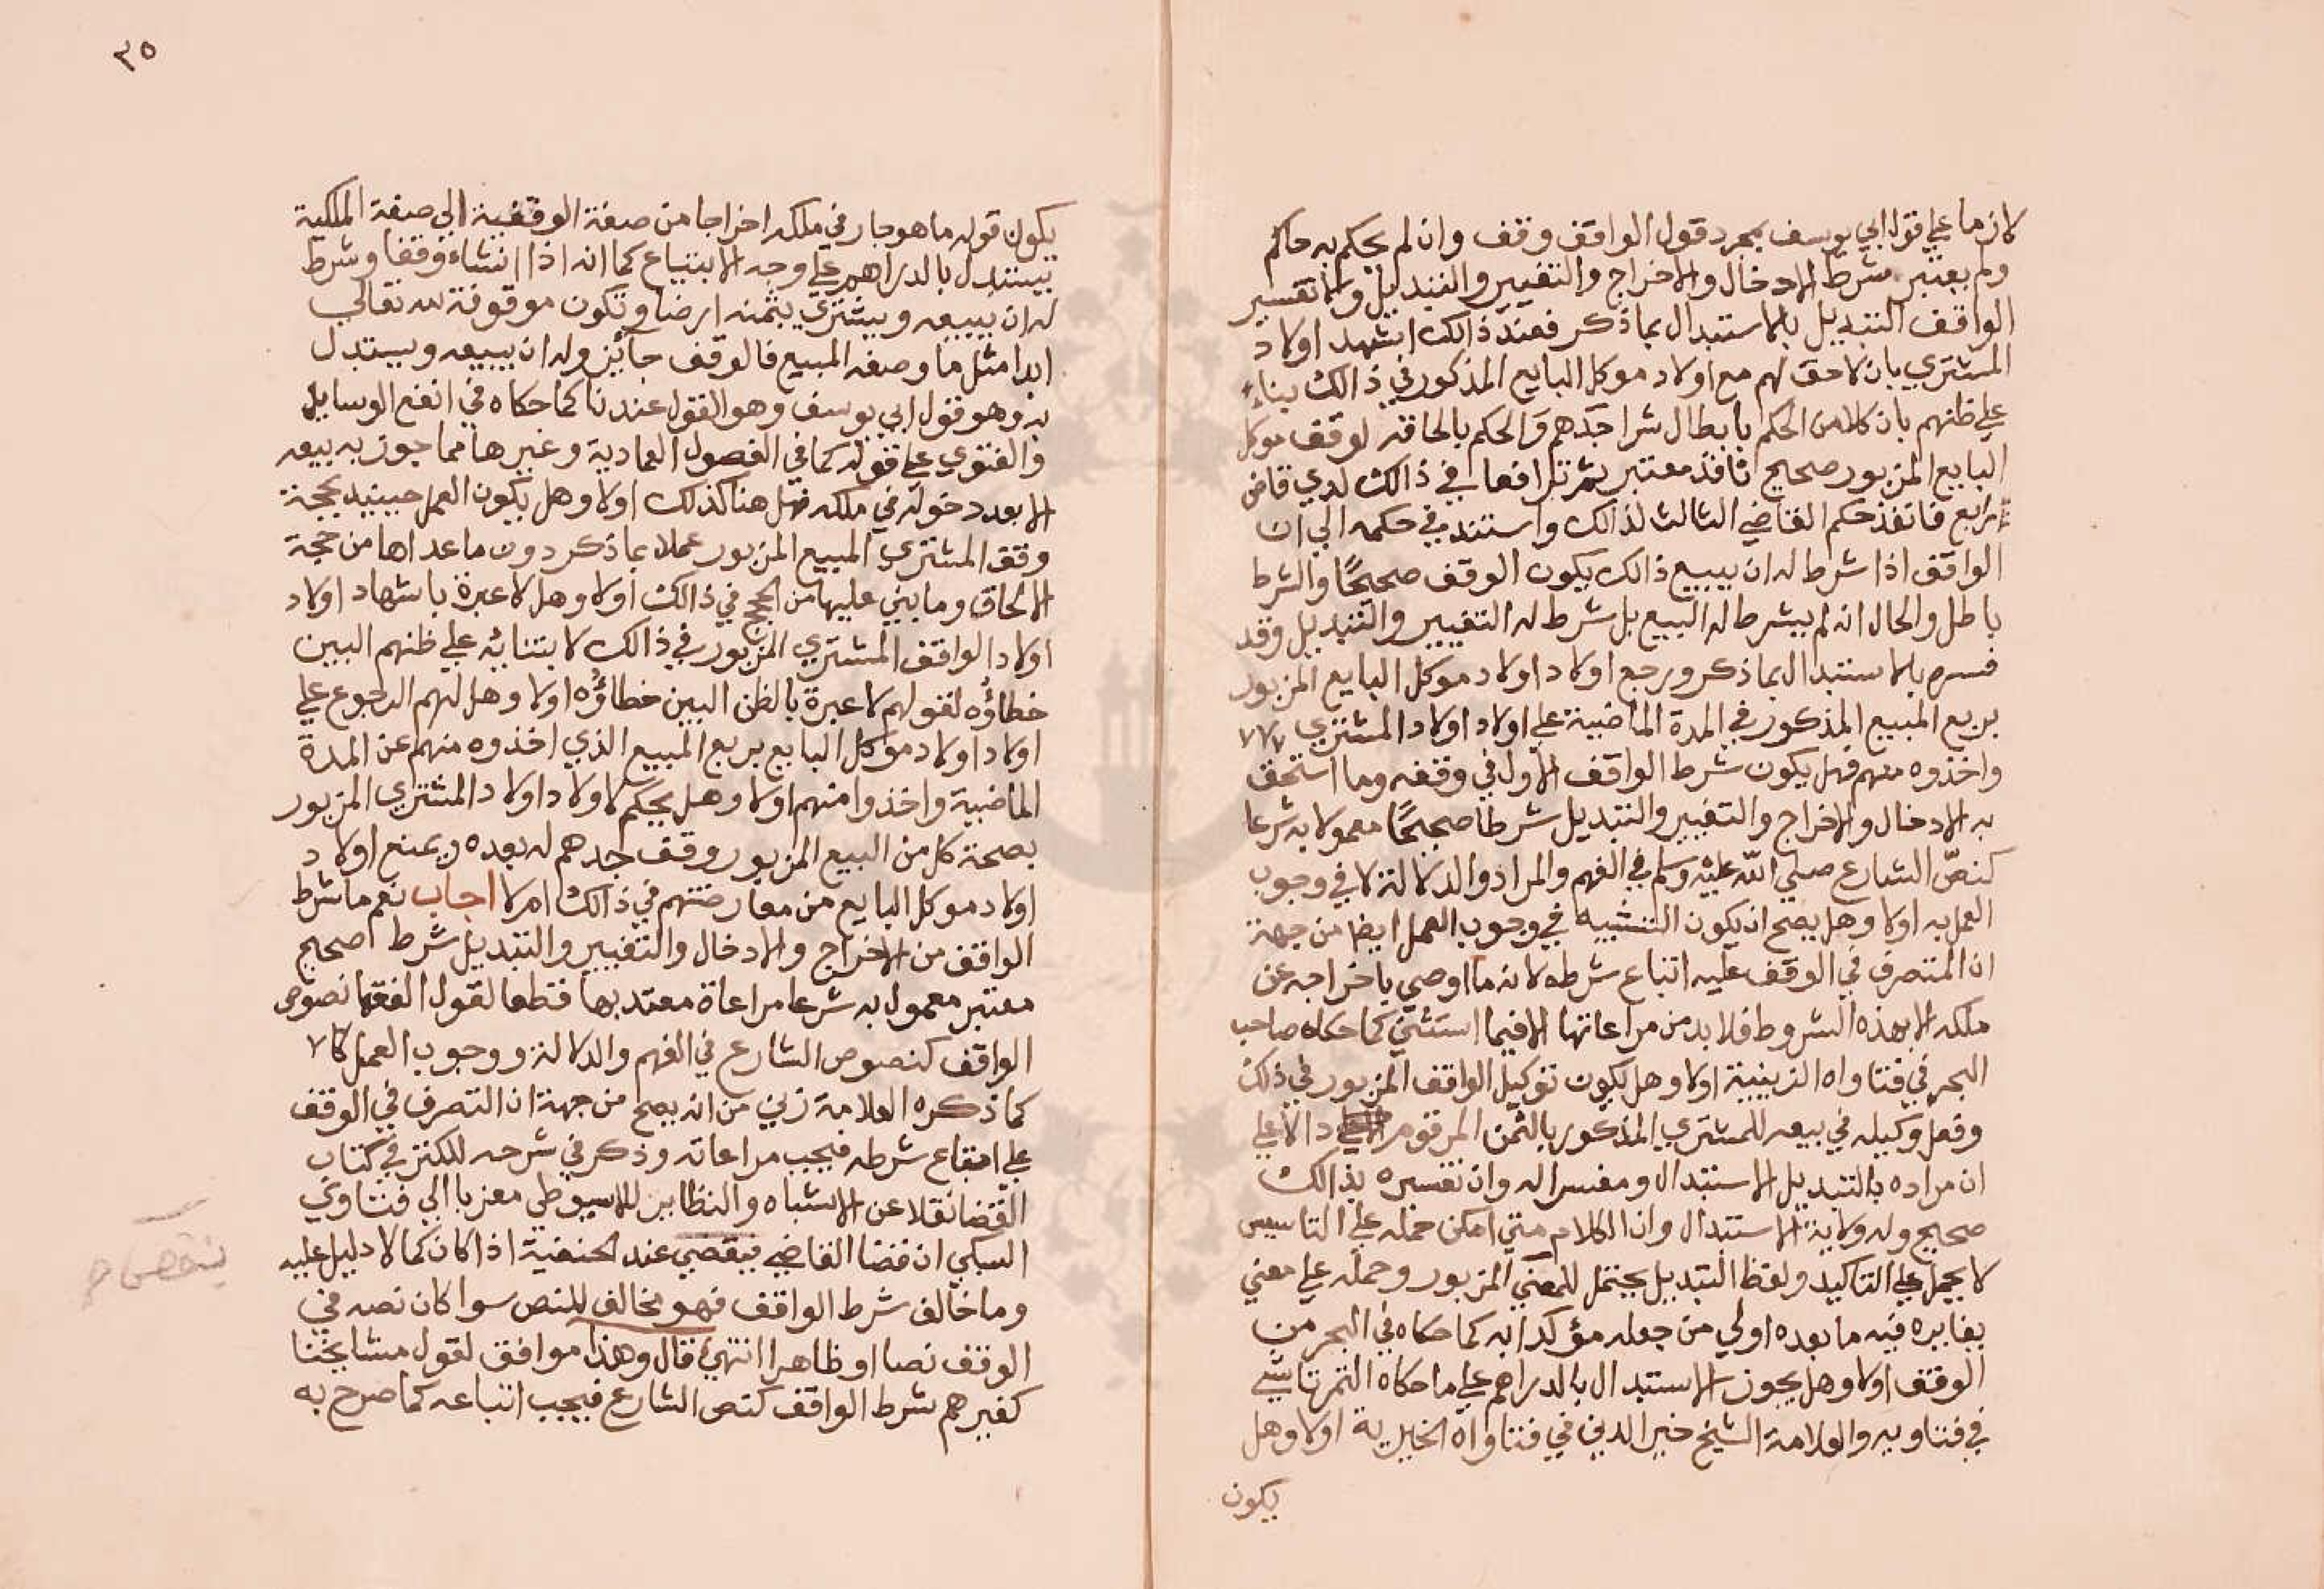 لازما علي قول ابي يوسف بمجرد قول الواقف وقف وان لم يحكم به حاكم
ولم يعتبر شرط الادخال والاخراج والتغيير والتبديل ولا تفسير
الواقف التبديل بالاستبدال بما ذكر فعند ذالك اشهد اولاد
المشتري بان لا حق لهم مع اولاد موكل البايع المذكور في ذالك بناء
علي ظنهم بان كلا من الحكم بابطال شرا جدهم والحكم بالحاقه لوقف موكل
البايع المزبور صحيح نافذ معتبر ثم ترافعا في ذالك لدي قاض
رابع فانفذ حكم القاضي الثالث لذالك واستند في حكمه الي ان
الواقف اذا شرط له ان يبيع ذالك يكون الوقف صحيحًا والشرط
باطل والحال انه لم يشرط له البيع بل شرط له التغيير والتبديل وقد
فسره بالاستبدال بما ذكر ورجع اولاد اولاد موكل البايع المزبور
بريع المبيع المذكور في المدة الماضية علي اولاد اولاد المشتري
واخذوه منهم فهل يكون شرط الواقف الاول في وقفه وما استحق
به الادخال والاخراج والتغيير والتبديل شرطا صحيحًا معمولا به شرعا
كنصّ الشارع صلي الله عليه وسلم في الفهم والمراد والدلالة لا في وجوب
العمل به اولا وهل يصح ان يكون التشبيه في وجوب العمل ايضا من جهة
ان المتصرف في الوقف عليه اتباع شرطه لانه ما اوصي باخراجه عن
ملكه الا بهذه الشروط فلا بد من مراعاتها الا فيما استثني كما حكاه صاحب
البحر في فتاواه الزينية اولا وهل يكون توكيل الواقف المزبور في ذلك
وفعل وكيله في بيعه للمشتري المذكور بالثمن المرقوم دالا علي
ان مراده بالتبديل الاستبدال ومفسرا له وان تفسيره بذالك
صحيح وله ولاية الاستبدال وان الكلام متي امكن حمله علي التاسيس
لا يحمل علي التاكيد ولفظ التبديل يحتمل للمعني المزبور وحمله علي معني
يغايره فيه ما بعده اولي من جعله مؤكدا به كما حكاه في البحر من
الوقف اولا وهل يجوز الاستبدال بالدراهم علي ما حكاه التمرتاشي
في فتاويه والعلامة الشيخ خير الدين في فتاواه الخيرية اولا وهل
يكون
٣٥
يكون قوله ما هو جار في ملكه اخراجا من صفة الوقفية الي صفة الملكية
يستبدل بالدراهم علي وجه الابتياع كما انه اذا انشاء وقفا وشرط
له ان يبيعه ويشتري بثمنه ارضا وتكون موقوفة لله تعالي
ابدا مثل ما وصفه المبيع فالوقف جائز وله ان يبيعه ويستبدل
به وهو قول ابي يوسف وهو القول عندنا كما حكاه في انفع الوسايل
والفتوي علي قوله كما في الفصول العمادية وغيرها مما جوز به بيعه
الا بعد دخوله في ملكه فهل هنا كذلك اولا وهل يكون العمل حينيذ بحجة
وقف المشتري المبيع المزبور عملا بما ذكر دون ما عداها من حجة
الالحاق وما بني عليها من الحجج في ذالك اولا وهل لا عبرة باشهاد اولاد
اولاد الواقف المشتري المزبور في ذالك لابتنائه علي ظنهم البين
خطاؤه لقولهم لا عبرة بالظن البين خطاؤه اولا وهل لهم الرجوع علي
اولاد اولاد موكل البايع بريع المبيع الذي اخذوه منهم عن المدة
الماضية واخذوا منهم اولا وهل يحكم لاولاد اولاد المشتري المزبور
بصحة كل من البيع المزبور ووقف جدهم له بعده ويمنع اولاد
اولاد موكل البايع من معارضتهم في ذالك ام لا اجاب نعم ما شرط
الواقف من الاخراج والادخال والتغيير والتبديل شرط صحيح
معتبر معمول به شرعا مراعاة معتد بها قطعا لقول الفقها نصوص
الواقف كنصوص الشارع في الفهم والدلالة ووجوب العمل
كما ذكره العلامة زين من انه يصح من جهة ان التصرف في الوقف
علي اتباع شرطه فيجب مراعاته وذكر في شرحه للكنز في كتاب
القضا نقلا عن الاشباه والنظاير للاسيوطي معزيا الي فتاوي
السبكي ان قضا القاضي ينقضي عند الحنفية اذا كان كما لا دليل عليه
وما خالف شرط الواقف فهو مخالف للنص سوا كان نصه في
الوقف نصا او ظاهرا انتهي قال وهذا موافق لقول مشايخنا
كغيرهم شرط الواقف كنص الشارع فيجب اتباعه كما صرح به